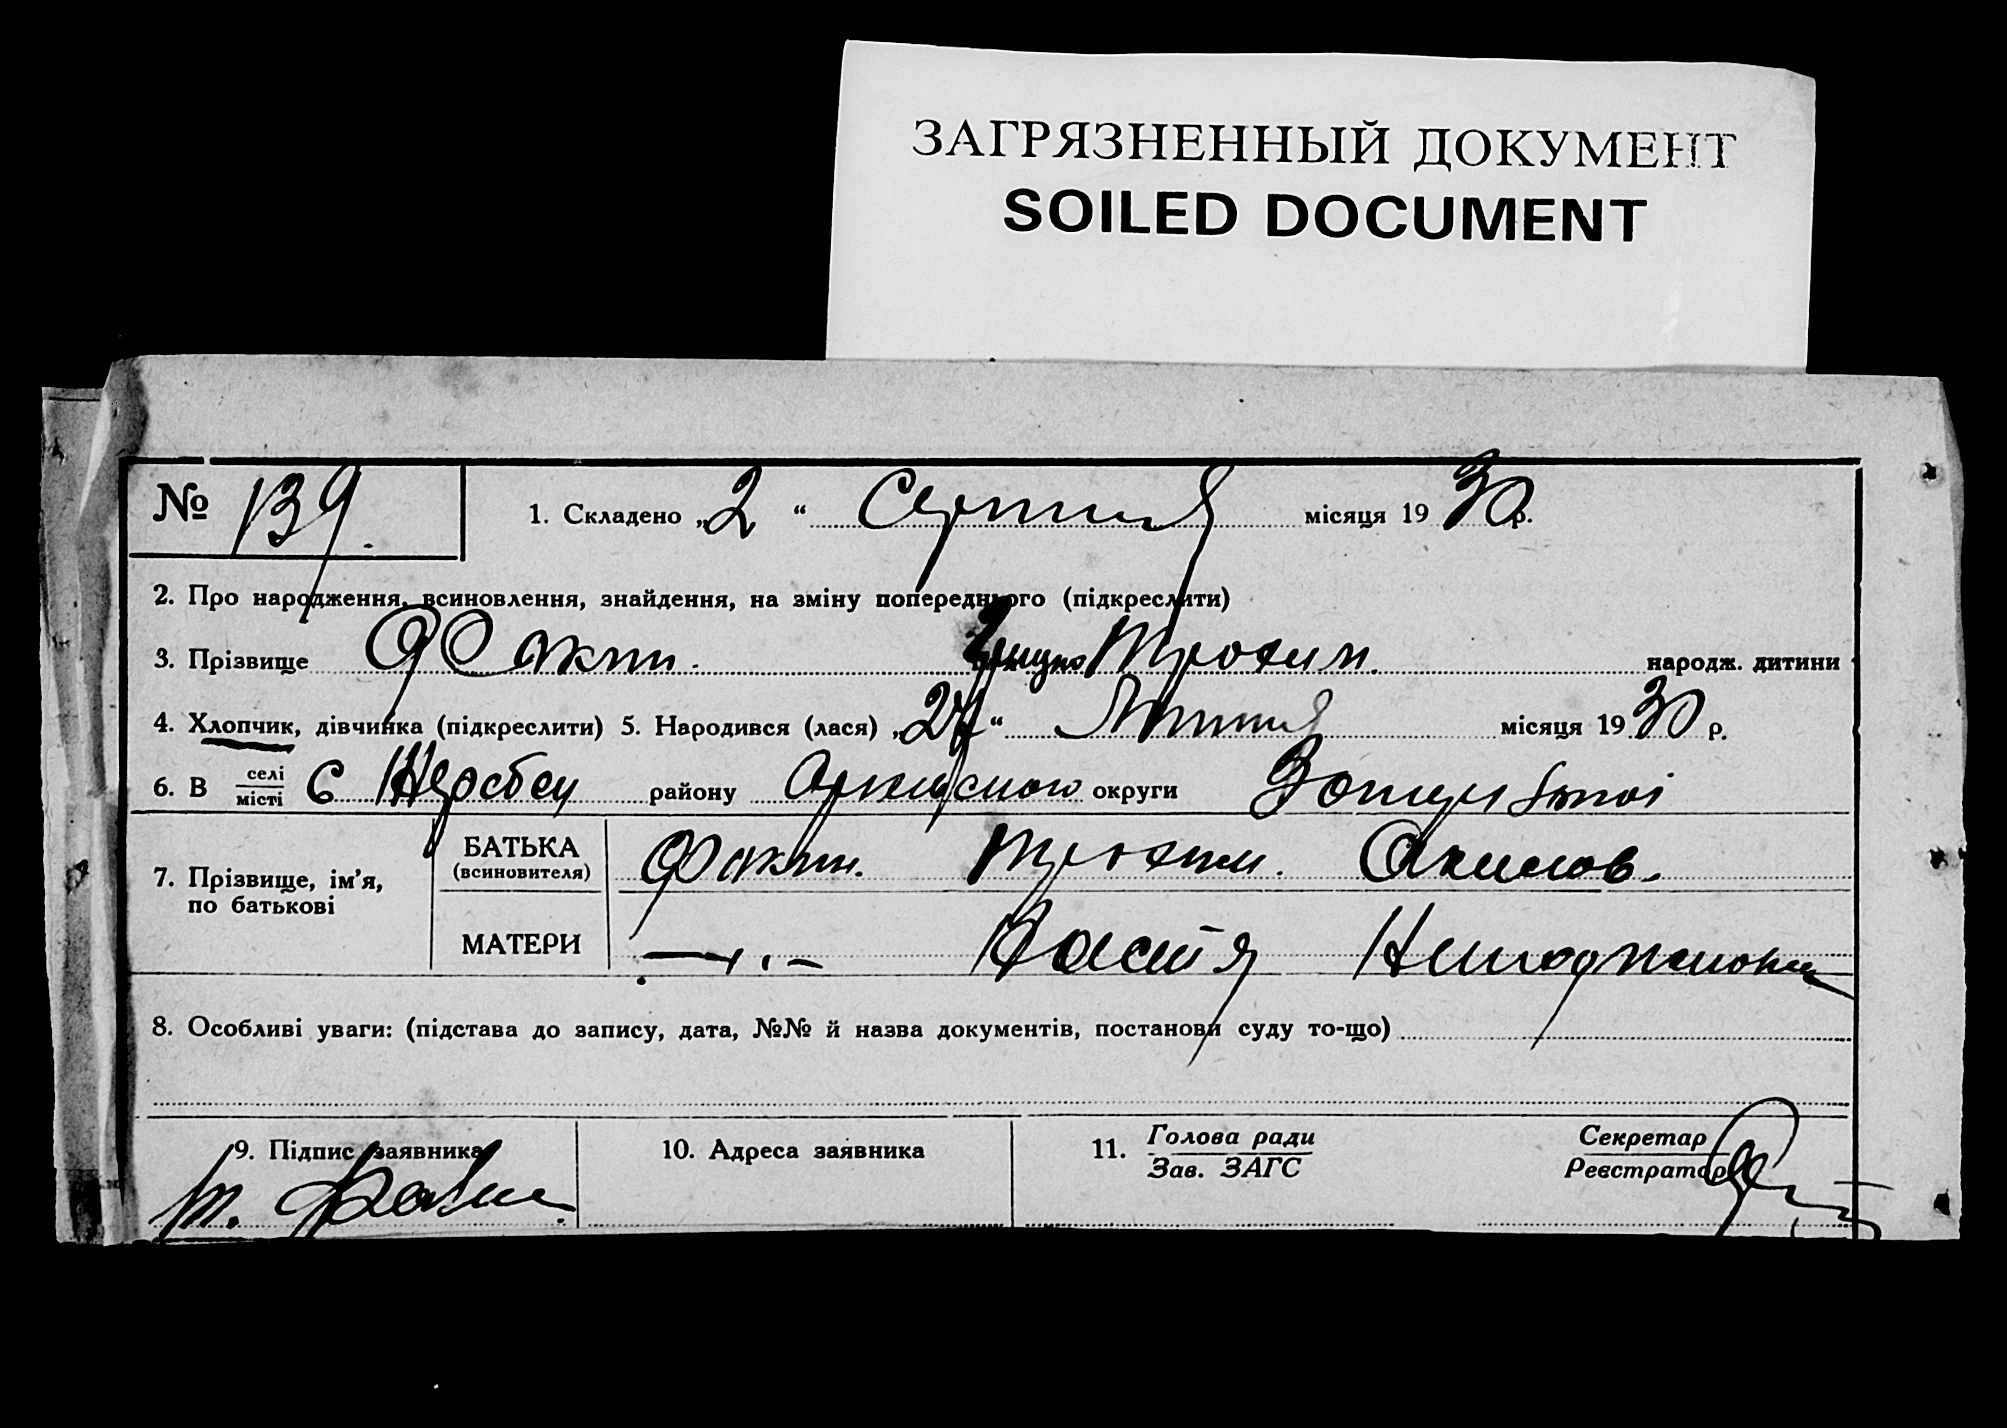 ЗАГРЯЗНЕННЫЙ ДОКУМЕНТ
SOILED DOCUMENT
№ 139. 1. Складено „2“ Серпня місяця 1930 р.
2. Про народження, всиновлення, знайдення, на зміну попереднього (підкреслити)
3. Прізвище Трохим. народж. дитини
4. Хлопчик, дівчинка (підкреслити) 5. Народився (лася) „24“ Липня місяця 1930 р.
6. В селі місті с району округи
7. Прізвище, ім’я, по батькові
БАТЬКА (всиновителя) Трохим.
МАТЕРИ Настя
8. Особливі уваги: (підстава до запису, дата, №№ й назва документів, постанови суду то-що)
9. Підпис заявника 10. Адреса заявника 11. Голова ради Зав. ЗАГС Секретар Реєстратор